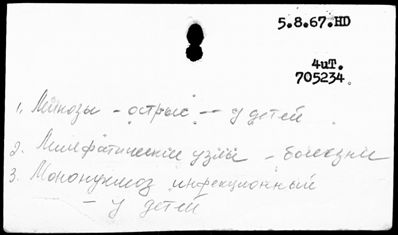 5.8.67.HD
4иТ.
705234
1. Лейкозы - острые -- у детей
2. Лимфатические узлы - болезни
3. Мононуклеоз инфекционный
- у детей